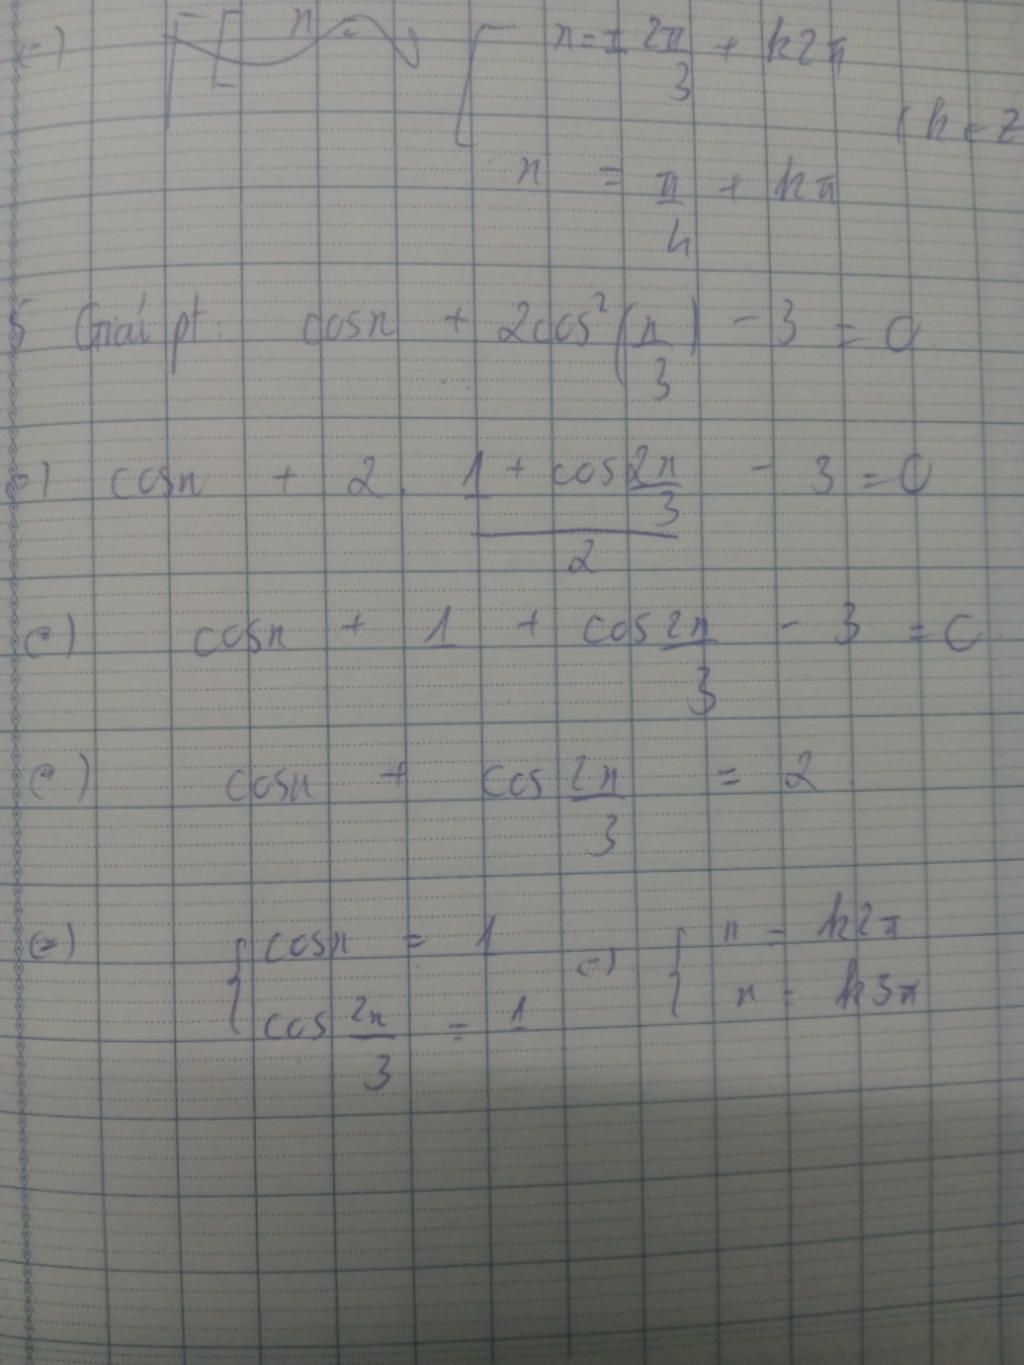 (=) x = ± 2π/3 + k2π
(k ∈ Z
x = π/4 + kπ
5 Giải pt: cosx + 2cos²(x/3) - 3 = 0
(=) cosx + 2. (1 + cos 2x/3)/2 - 3 = 0
(=) cosx + 1 + cos 2x/3 - 3 = 0
(=) cosx + cos 2x/3 = 2
(=) { cosx = 1 (=) { x = k2π
cos 2x/3 = 1 x = k3π